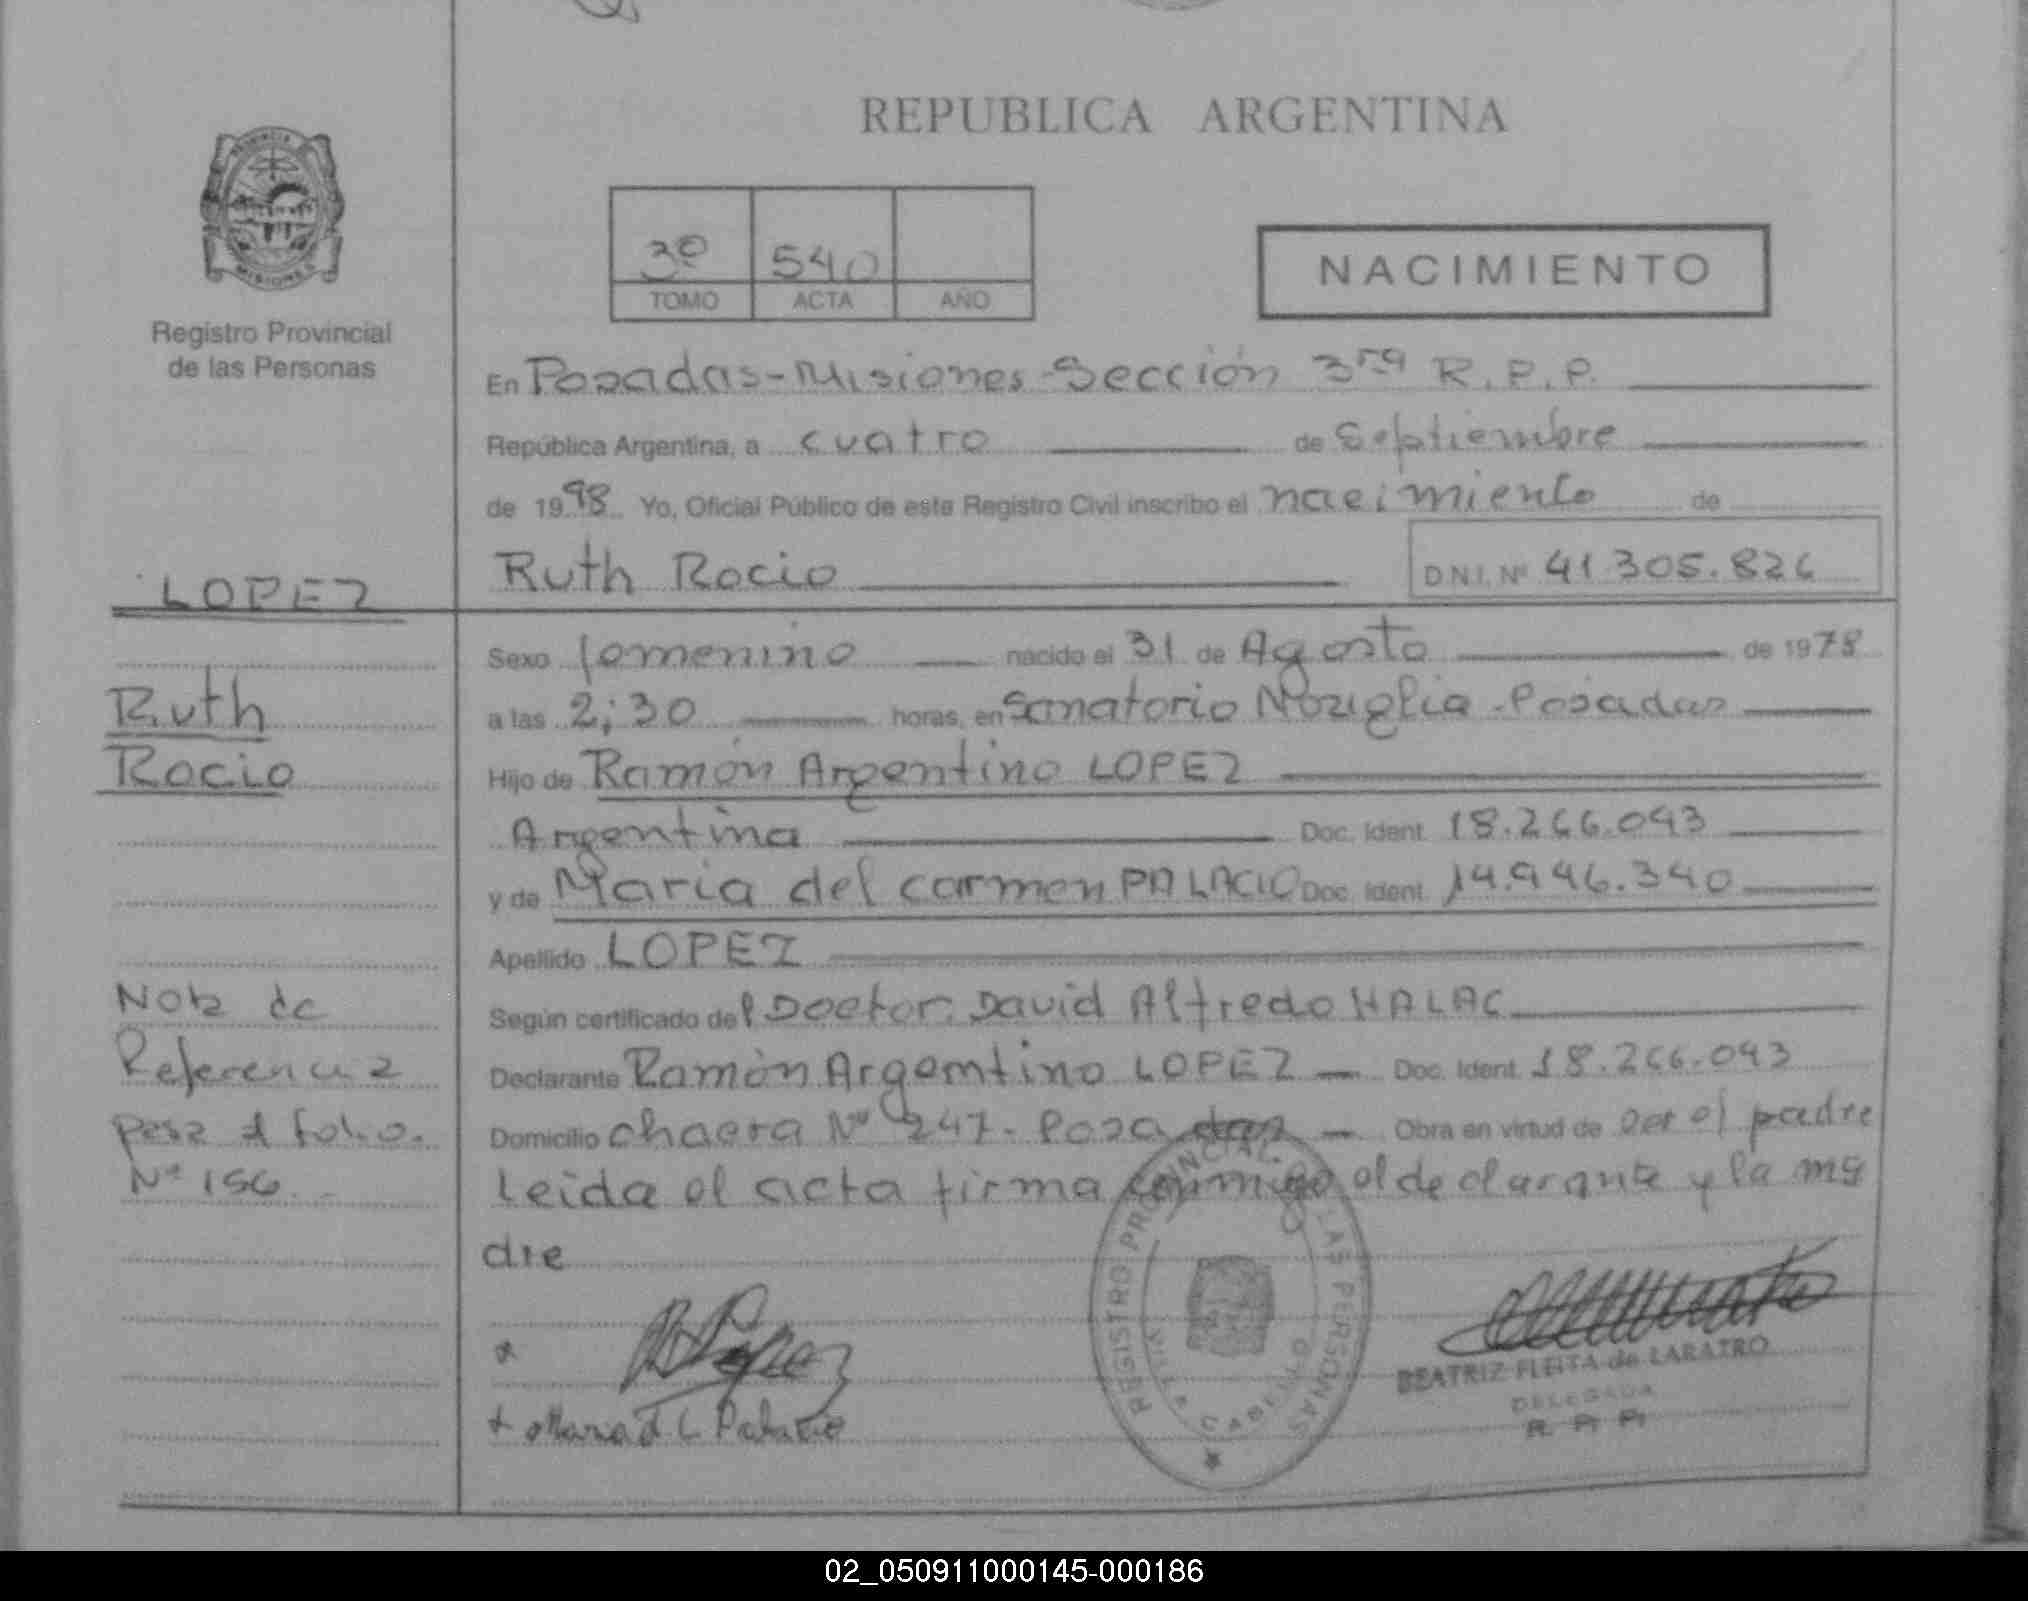 REPUBLICA ARGENTINA
PROVINCIA
MISIONES
Registro Provincial
de las Personas
3º 540
TOMO ACTA AÑO
NACIMIENTO
En Posadas-Misiones-Sección 3ra R.P.P.
República Argentina, a cuatro de Septiembre
de 1998 Yo, Oficial Público de este Registro Civil inscribo el nacimiento de
Ruth Rocio DNI. Nº 41.305.826
LOPEZ
Ruth
Rocio
Sexo femenino nacido el 31 de Agosto de 1978
a las 2:30 horas, en Sanatorio Posadas
Hijo de Ramón Argentino LOPEZ
Argentina Doc. Ident. 18.266.093
y de Maria del carmen PALACIO Doc. Ident. 14.946.340
Apellido LOPEZ
Según certificado del Doctor. David Alfredo HALAC
Declarante Ramón Argemtino LOPEZ Doc. Ident. 18.266.093
Domicilio chacra Nº 247- Posadas Obra en virtud de ser el padre
Leida el acta firma conmigo el declarante y la ma
dre
Nota de
Referencia
pasa al folio.
Nº 156
REGISTRO PROVINCIAL DE LAS PERSONAS
VILLA CABELLO
BEATRIZ FLEITA de LARATRO
DELEGADA
R. P. P.
02_050911000145-000186